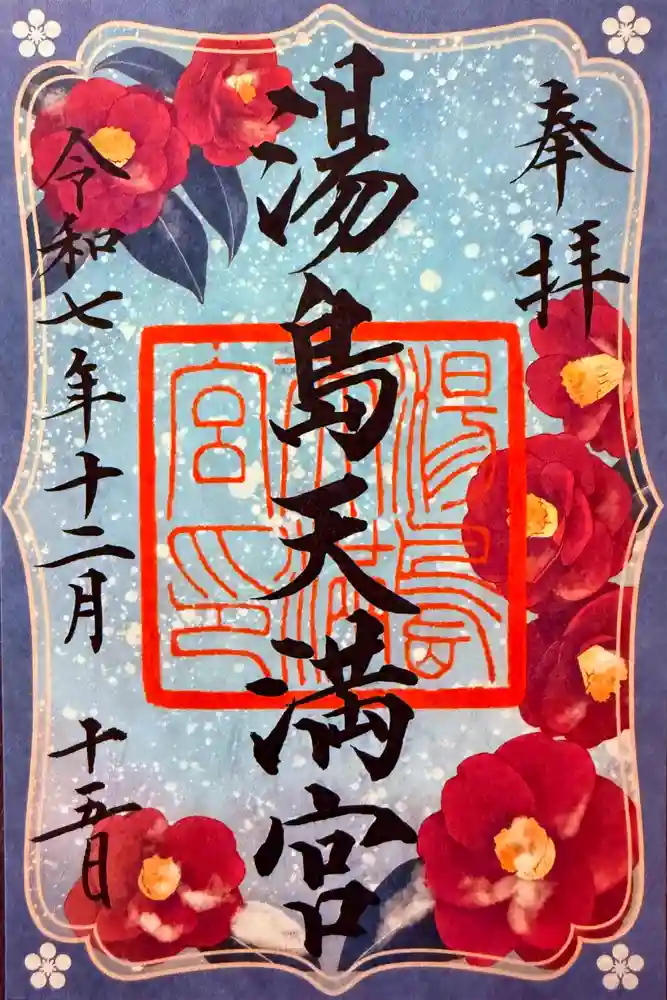 奉拝
湯島天満宮
湯島天満宮印
令和七年十二月十五日